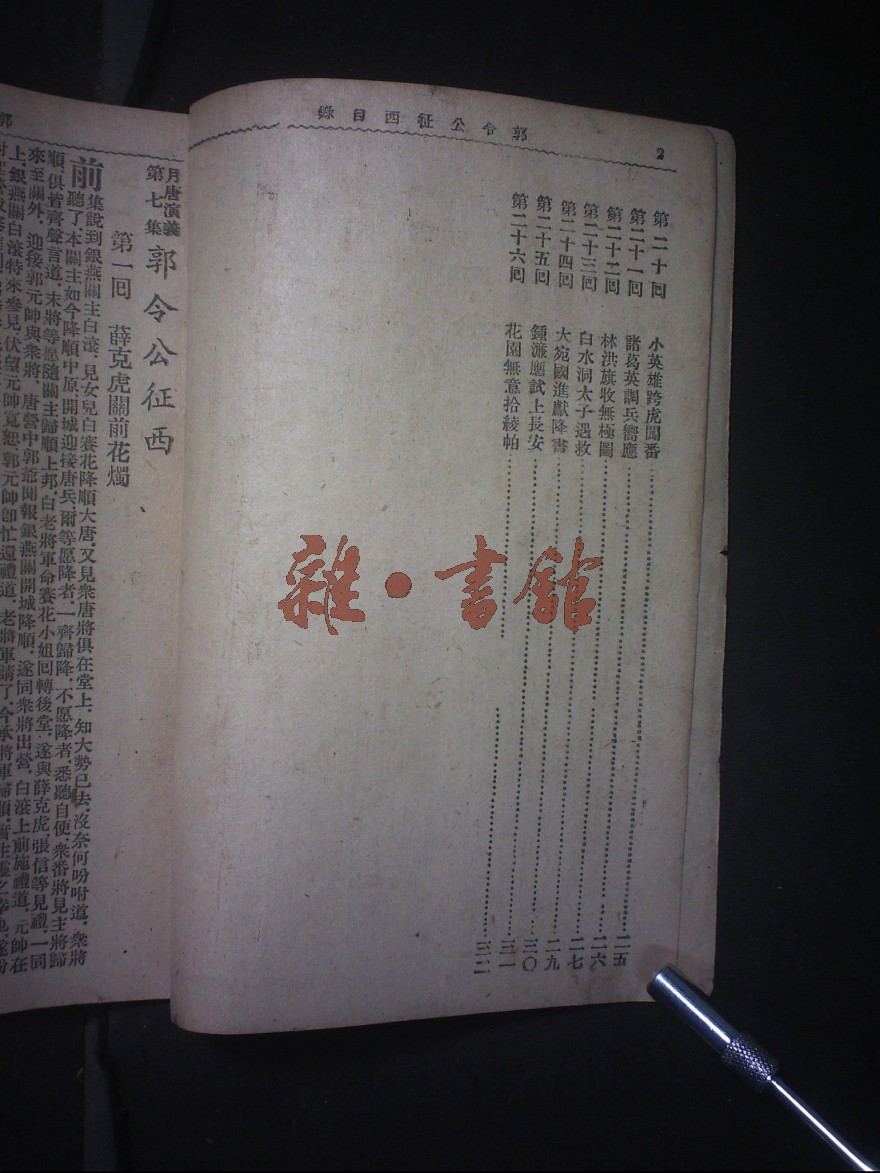 郭令公征西目錄
2
第二十回 小英雄跨虎闖番 二五
第二十一回 諸葛英調兵嚮應 二六
第二十二回 林洪旗收無極圖 二七
第二十三回 白水洞太子遇救 二九
第二十四回 大宛國進獻降書 三〇
第二十五回 鍾濂應試上長安 三一
第二十六回 花園無意拾綾帕 三二
雜·書館
郭
月唐演義
第七集
郭令公征西
第一回 薛克虎關前花燭
前集說到銀燕關主白滾、見女兒白賽花降順大唐、又見衆唐將俱在堂上、知大勢已去、沒奈何吩咐道、衆將
聽了、本關主如今降順中原、開城迎接唐兵、爾等愿降者、一齊歸降、不愿降者、悉聽自便、衆番將見主將歸
順、俱皆齊聲言道、末將等愿隨關主歸順上邦、白老將軍命賽花小姐回轉後堂、遂與薛克虎、張信等見禮、一同
來至關外、迎接郭元帥與衆將、唐營中郭爺聞報銀燕關開城降順、遂同衆將出營、白滾上前施禮道、元帥在
上、銀燕關白滾特來參見、伏望元帥寬恕、郭元帥卽忙還禮道、老將軍請了、今承將軍歸順、